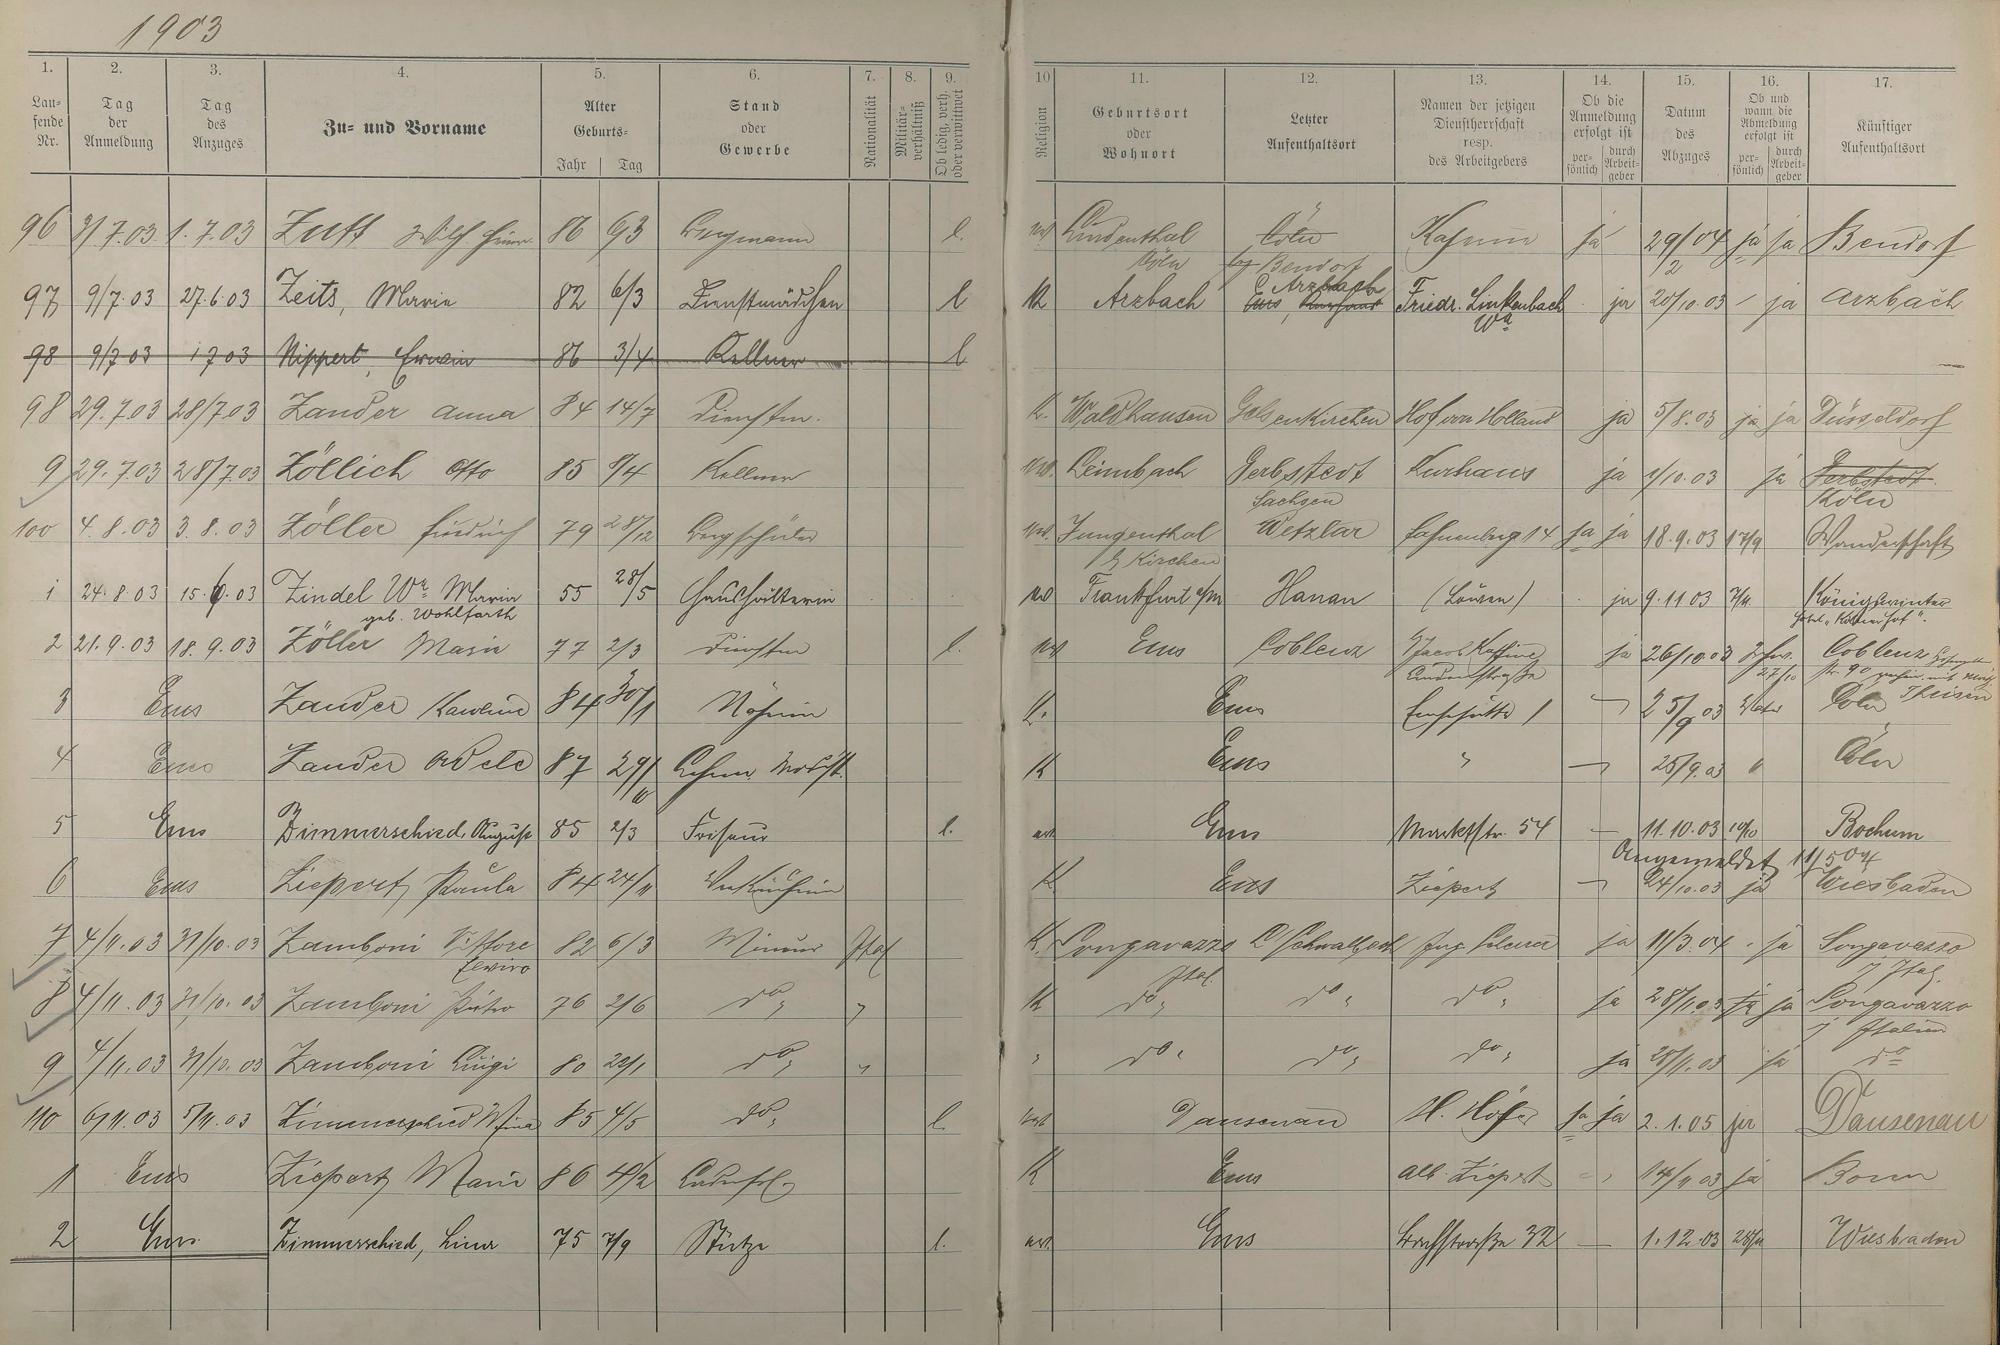 1903
1. 2. 3. 4. 5. 6. 7. 8. 9. 10 11. 12. 13. 14. 15. 16. 17.
Lau-
fende
Nr.
Tag
der
Anmeldung
Tag
des
Anzuges
Zu- und Vorname
Alter
Geburts-
Jahr Tag
Stand
oder
Gewerbe
Nationalität
Militär-
verhältniß
Ob ledig, verh.
oder verwittwet
Religion
Geburtsort
oder
Wohnort
Letzter
Aufenthaltsort
Namen der jetzigen
Dienstherrschaft
resp.
des Arbeitgebers
Ob die
Anmeldung
erfolgt ist
per-
sönlich
durch
Arbeit-
geber
Datum
des
Abzuges
Ob und
wann die
Abmeldung
erfolgt ist
per-
sönlich
durch
Arbeit-
geber
Künftiger
Aufenthaltsort
96 3/7.03 1.7.03 86 Bergmann l. Lindenthal Cöln ja 29/04 ja ja Bendorf
Köln Bendorf 2
97 9/7.03 27.6.03 Zeits, Marie 82 6/3 Dienstmädchen l K Arzbach Arzbach Friedr. Linkenbach ja 20/10.03 ja Arzbach
Ww
98 9/7 03 1 7 03 Nippert, Erwin 86 3/4 Kellner l
98 29.7.03 28/7.03 Zander Anna 84 14/7 Dienstm. K. Waldhausen Gelsenkirchen Hof von Holland ja 5/8.03 ja ja Düsseldorf
9 29.7.03 28/7.03 Zöllich Otto 85 8/4 Kellner Leimbach Gerbstedt Kurhaus ja 1/10.03 ja Gerbstedt
Sachsen Köln
100 4.8.03 3.8.03 Zöller Friedrich 79 28/12 Bergschüler Jungenthal Wetzlar 14 ja ja 18.9.03 17/9 Wanderschaft
Kirchen
1 24.8.03 15.6.03 Zindel Ww Marie 55 28/5 Haushälterin Frankfurt a/m Hanau (Löwen) ja 9.11 03 Königswinter
geb. Wohlfarth Hotel "Kölner Hof".
2 21.9.03 18.9.03 Zöller Marie 77 2/3 Dienstm l. Ems Coblenz Jacob ja 26/10.03 Coblenz
27/10
3 Ems Zander Karoline 84 30/1 Näherin K. Ems 1 25/9 03 Cöln
Theisen
4 Ems Zander Adele 87 29/10 K Ems " 25/9.03 " Cöln
5 Ems Zimmerschied, August 85 2/3 Friseur l. Ems Marktstr. 54 — 11.10.03 10/10 Bochum
Angemeldet 11/5 04
6 Ems Ziepert, Paula 84 24/11 Verkäuferin K. Ems Ziepert 24/10.03 ja Wiesbaden
7 4/11.03 31/10.03 Zamboni Vittore 82 6/3 Mineur Ital K. Songavazzo L Schwalbach ja 11/3.04 ja Songavazzo
Ital. Ital.
8 4/11.03 31/10.03 Zamboni Pietro 76 2/6 do " K do " do " do " ja 28/11.03 ja ja Songavazzo
Italien
9 4/11.03 31/10.03 Zamboni Luigi 80 22/1 do " " " do " do " do " ja 28/11.03 ja do
110 6/11.03 5/11.03 Zimmerschied 85 4/5 do " l. Dausenau H. Höfer ja ja 2.1.05 ja Dausenau
1 Ems Ziepert Marie 86 4/2 K Ems Alb. Ziepert 14/11 03 ja Bonn
2 Ems Zimmerschied, Lina 75 7/9 Stütze l. Ems 32 — 1.12.03 28/11 Wiesbaden